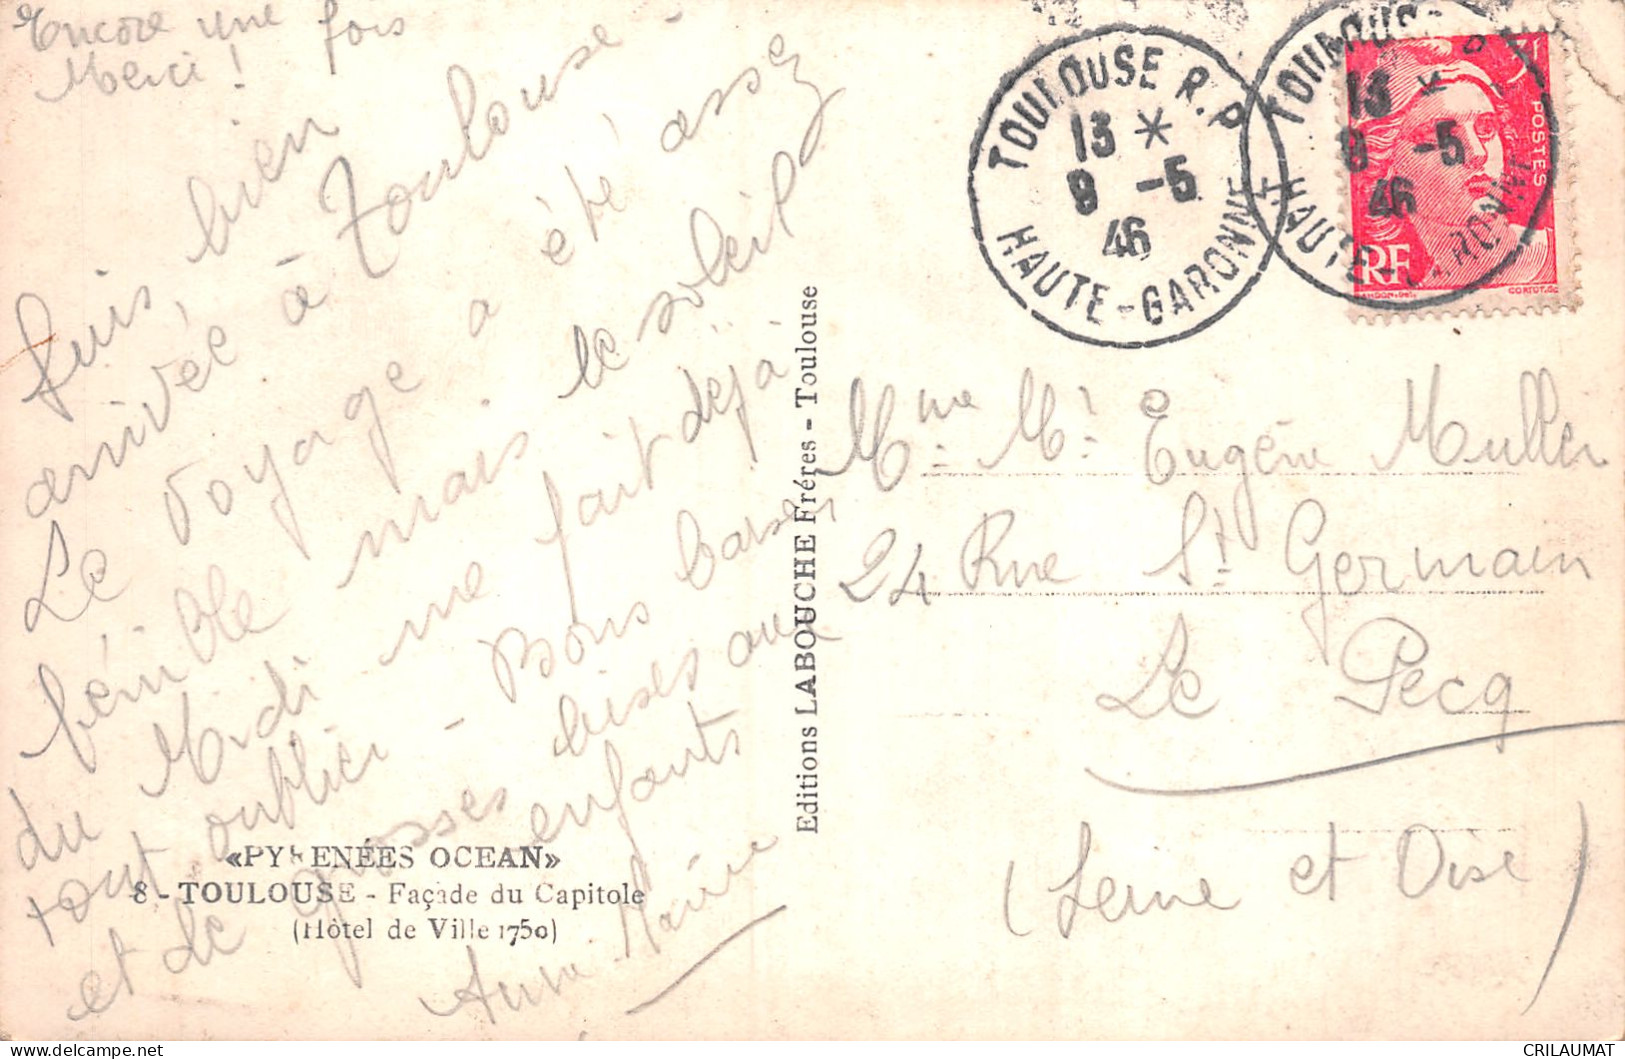 Encore une fois
Merci !
suis bien
arrivée à Toulouse -
Le voyage a été assez
pénible mais le soleil
du Midi me fait déjà
tout oublier - Bons baisers
et de grosses bises aux
enfants
Anne Marie
«PYRENÉES OCEAN»
8 - TOULOUSE - Façade du Capitole
(Hôtel de Ville 1750)
Editions LABOUCHE Fréres - Toulouse
TOULOUSE R.P.
13 *
9 -5
46
HAUTE-GARONNE
TOULOUSE R.P.
13 *
9 -5
46
HAUTE-GARONNE
POSTES
RF
GANDON-DEL.
CORTOT.SC
Mme Mr Eugène Muller
24 Rue St Germain
Le Pecq
(Seine et Oise)
delcampe.net
CRILAUMAT